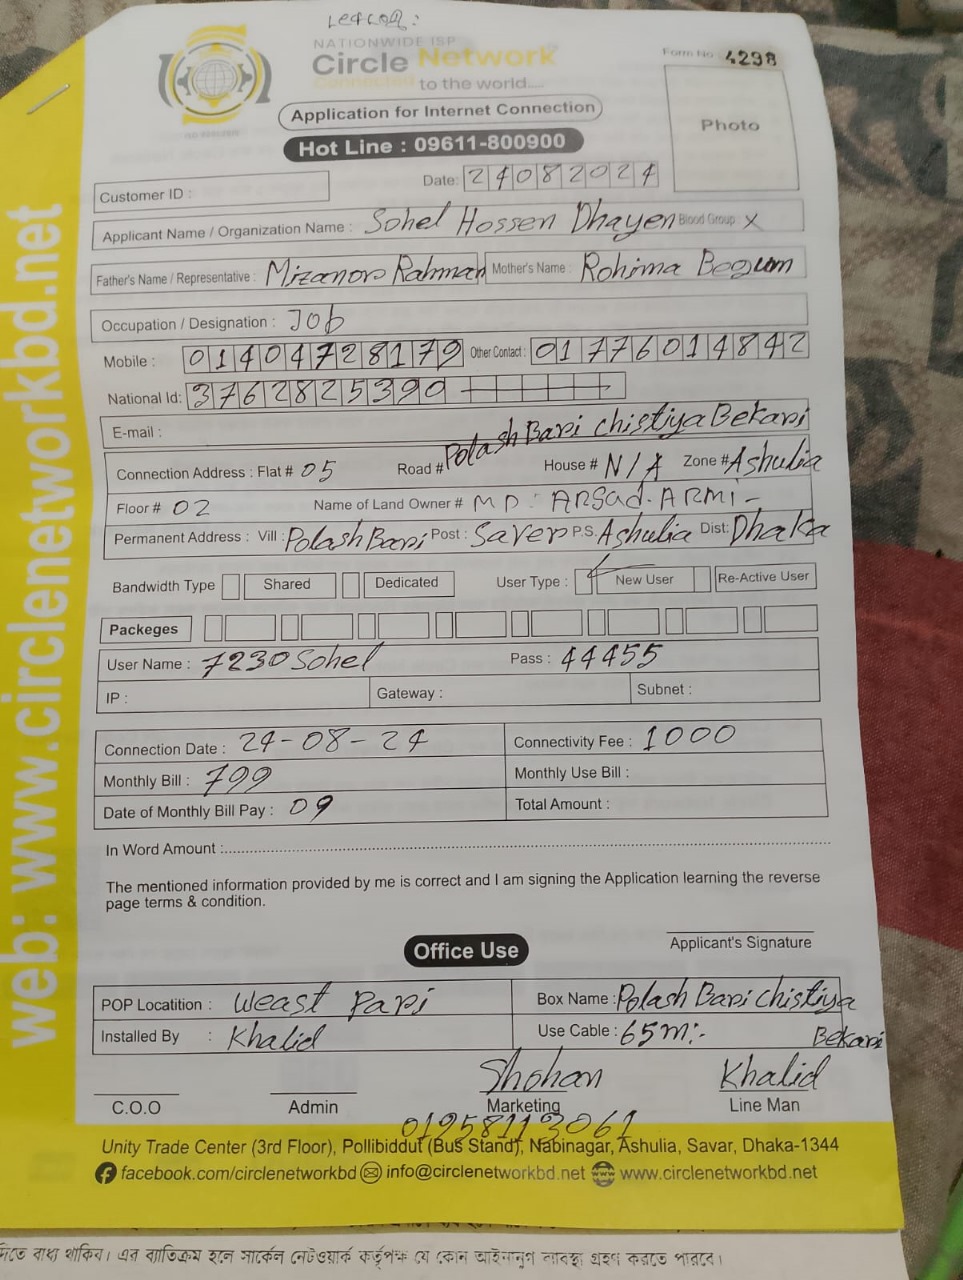 NATIONWIDE ISP
Circle Network
Connected to the world....
Form No : 4298
Application for Internet Connection
Hot Line : 09611-800900
Photo
Date: 24082024
Customer ID :
Applicant Name / Organization Name : Sohel Hossen Dhayen Blood Group : X
Father's Name / Representative : Mizanor Rahman Mother's Name : Rohima Begum
Occupation / Designation : Job
Mobile : 01404728179 Other Contact : 01776014842
National Id: 3762825390
E-mail :
Connection Address : Flat # 05 Road # Polash Bari chistiya Bekari House # N/A Zone # Ashulia
Floor # 02 Name of Land Owner # MD: ARSad. ARMi-
Permanent Address : Vill : Polash Bari Post : Saver P.S. Ashulia Dist: Dhaka
Bandwidth Type Shared Dedicated User Type : New User Re-Active User
Packeges
User Name : 7230Sohel Pass : 44455
IP : Gateway : Subnet :
Connection Date : 24-08-24 Connectivity Fee : 1000
Monthly Bill : 799 Monthly Use Bill :
Date of Monthly Bill Pay : 09 Total Amount :
In Word Amount :
The mentioned information provided by me is correct and I am signing the Application learning the reverse
page terms & condition.
Applicant's Signature
Office Use
POP Locatition : Weast Pari Box Name : Polash Bari chistiya
Bekari
Installed By : Khalid Use Cable : 65m:-
Shohan Khalid
C.O.O Admin Marketing Line Man
01958113061
Unity Trade Center (3rd Floor), Pollibiddut (Bus Stand), Nabinagar, Ashulia, Savar, Dhaka-1344
facebook.com/circlenetworkbd info@circlenetworkbd.net www.circlenetworkbd.net
web: www.circlenetworkbd.net
দিতে বাধ্য থাকিব। এর ব্যতিক্রম হলে সার্কেল নেটওয়ার্ক কর্তৃপক্ষ যে কোন আইনানুগ ব্যবস্থা গ্রহণ করতে পারবে।